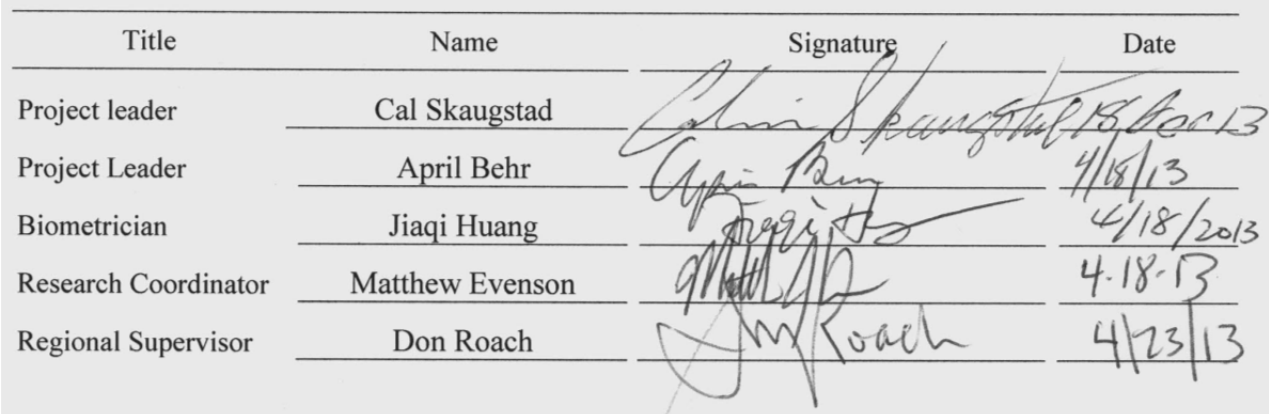 Title Name Signature Date
Project leader Cal Skaugstad Calvin Skaugstad 18 Apr 13
Project Leader April Behr April Behr 4/18/13
Biometrician Jiaqi Huang Jiaqi 4/18/2013
Research Coordinator Matthew Evenson 4-18-13
Regional Supervisor Don Roach Roach 4/23/13